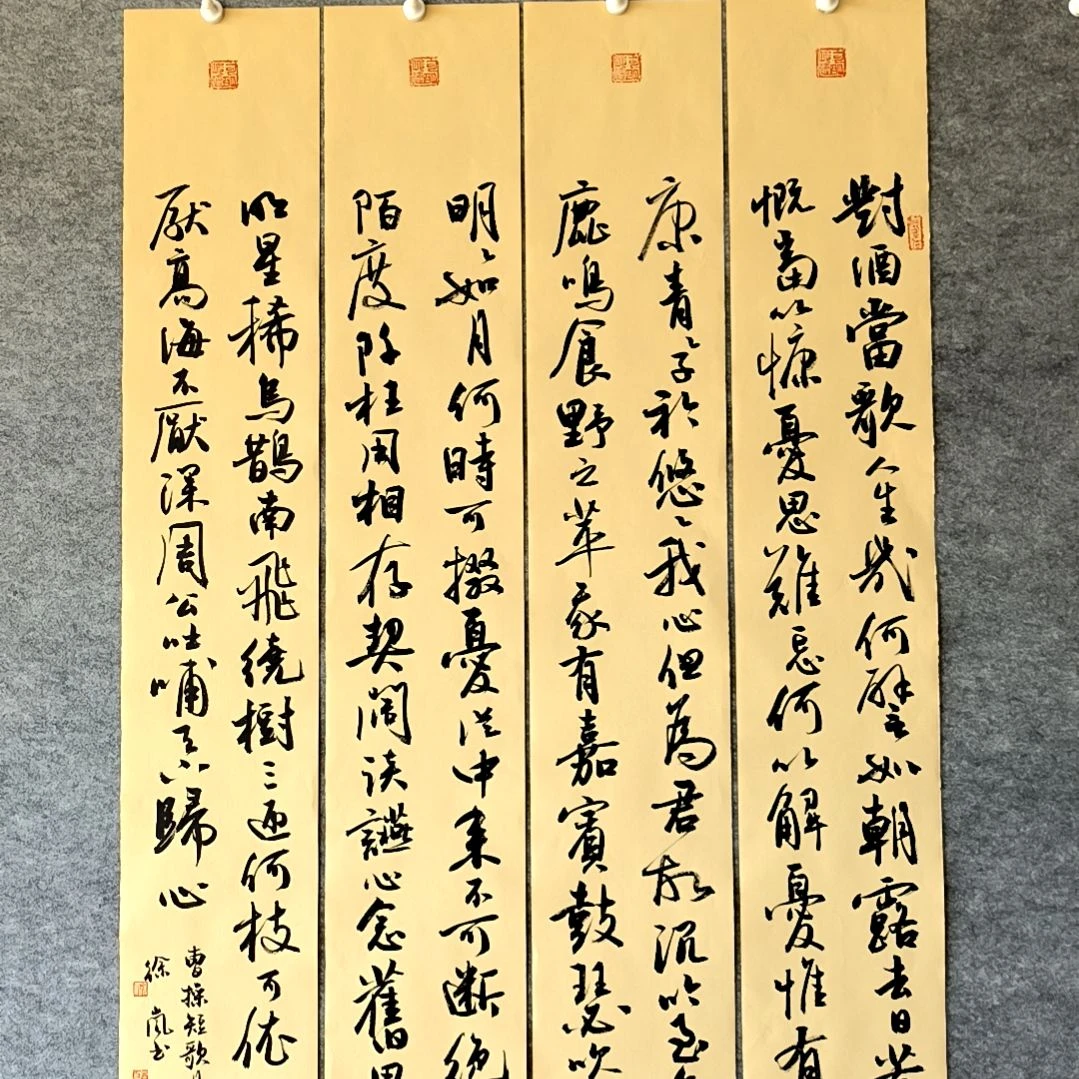 對酒當歌人生幾何譬如朝露去日苦
慨當以慷憂思難忘何以解憂惟有
康青〻子衿悠〻我心但為君故沉吟至
鹿鳴食野之苹我有嘉賓鼓瑟吹
明〻如月何時可掇憂從中來不可斷絕
陌度阡枉用相存契闊談讌心念舊恩
明星稀烏鵲南飛繞樹三匝何枝可依
厭高海不厭深周公吐哺天下歸心
曹操短歌
徐嵐书